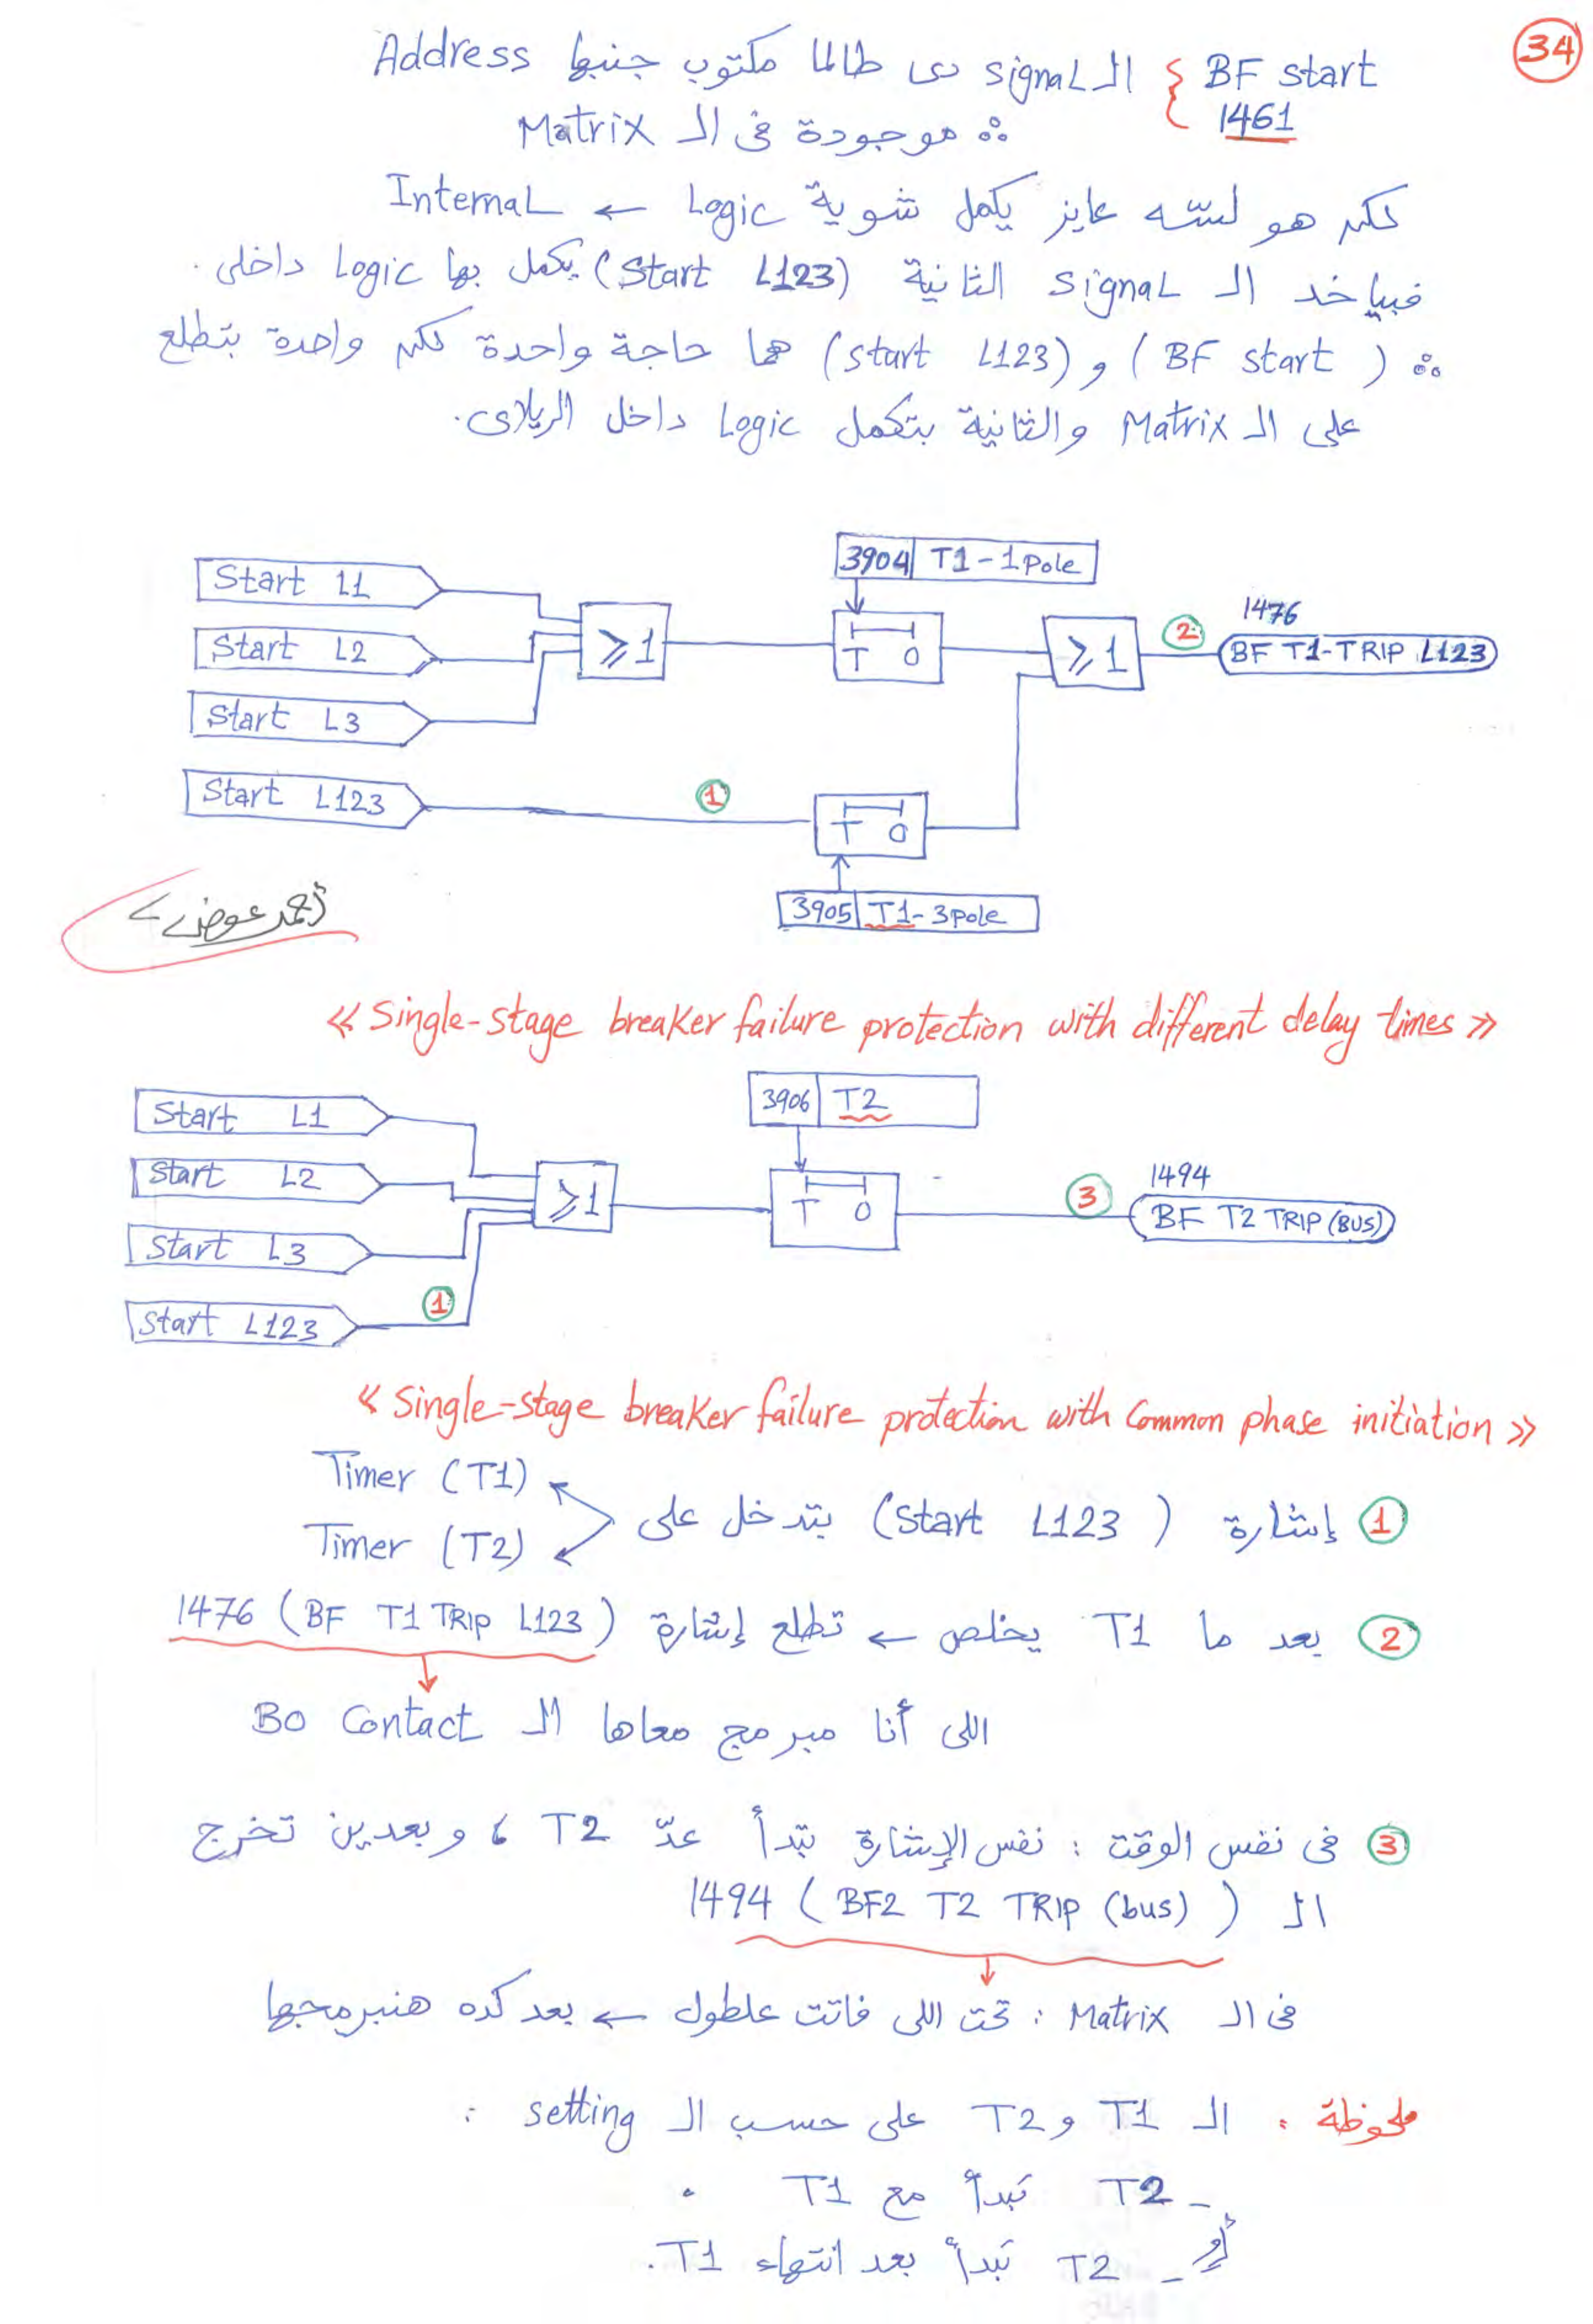 34
BF start } الـ signal دى طالما مكتوب جنبها Address
1461
∴ موجودة فى الـ Matrix
لكن هو لسّه عايز يكمل شوية Logic ← Internal
فبياخد الـ signal الثانية (Start L123) يكمل بها Logic داخلى.
∴ (BF start) و (start L123) هما حاجة واحدة لكن واحدة بتطلع
على الـ Matrix والثانية بتكمل Logic داخل الريلاى.
3904 T1-1pole
Start L1
Start L2
Start L3
≥1
T 0
≥1
2
1476
BF T1-TRIP L123
Start L123
1
T 0
3905 T1-3pole
أحمد عوض
« Single-stage breaker failure protection with different delay times »
3906 T2
Start L1
Start L2
Start L3
Start L123
1
≥1
T 0
3
1494
BF T2 TRIP (BUS)
« Single-stage breaker failure protection with Common phase initiation »
1 إشارة (Start L123) بتدخل على
Timer (T1)
Timer (T2)
2 بعد ما T1 يخلص ← تطلع إشارة 1476 (BF T1 TRIP L123)
اللى أنا مبرمج معاها الـ BO Contact
3 فى نفس الوقت : نفس الإشارة تبدأ عدّ T2 ، وبعدين تخرج
الـ 1494 (BF2 T2 TRIP (bus))
فى الـ Matrix : تحت اللى فاتت علطول ← بعد كده هنبرمجها
ملحوظة : الـ T1 و T2 على حسب الـ setting :
- T2 تبدأ مع T1 .
أو
- T2 تبدأ بعد انتهاء T1.